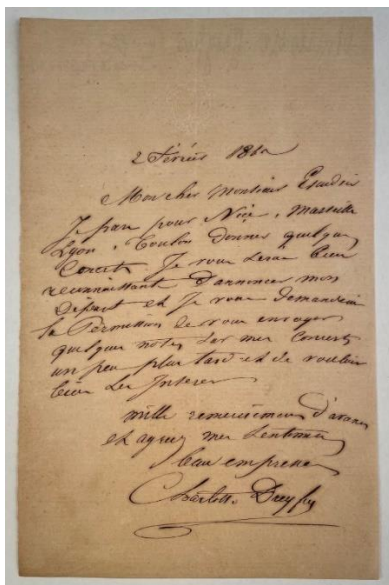 2 Février 1860
Mon cher Monsieur Escudier
Je pars pour Nice, Marseille
Lyon, Toulon donner quelques
Concerts Je vous serai bien
reconnaissante d'annoncer mon
Départ et Je vous demanderai
la Permission de vous envoyer
quelques notes sur mes Concerts
un peu plus tard et de vouloir
bien les Inserer
mille remerciements d'avance
et agréez mes sentiments
empressés
Charlotte Dreyfus